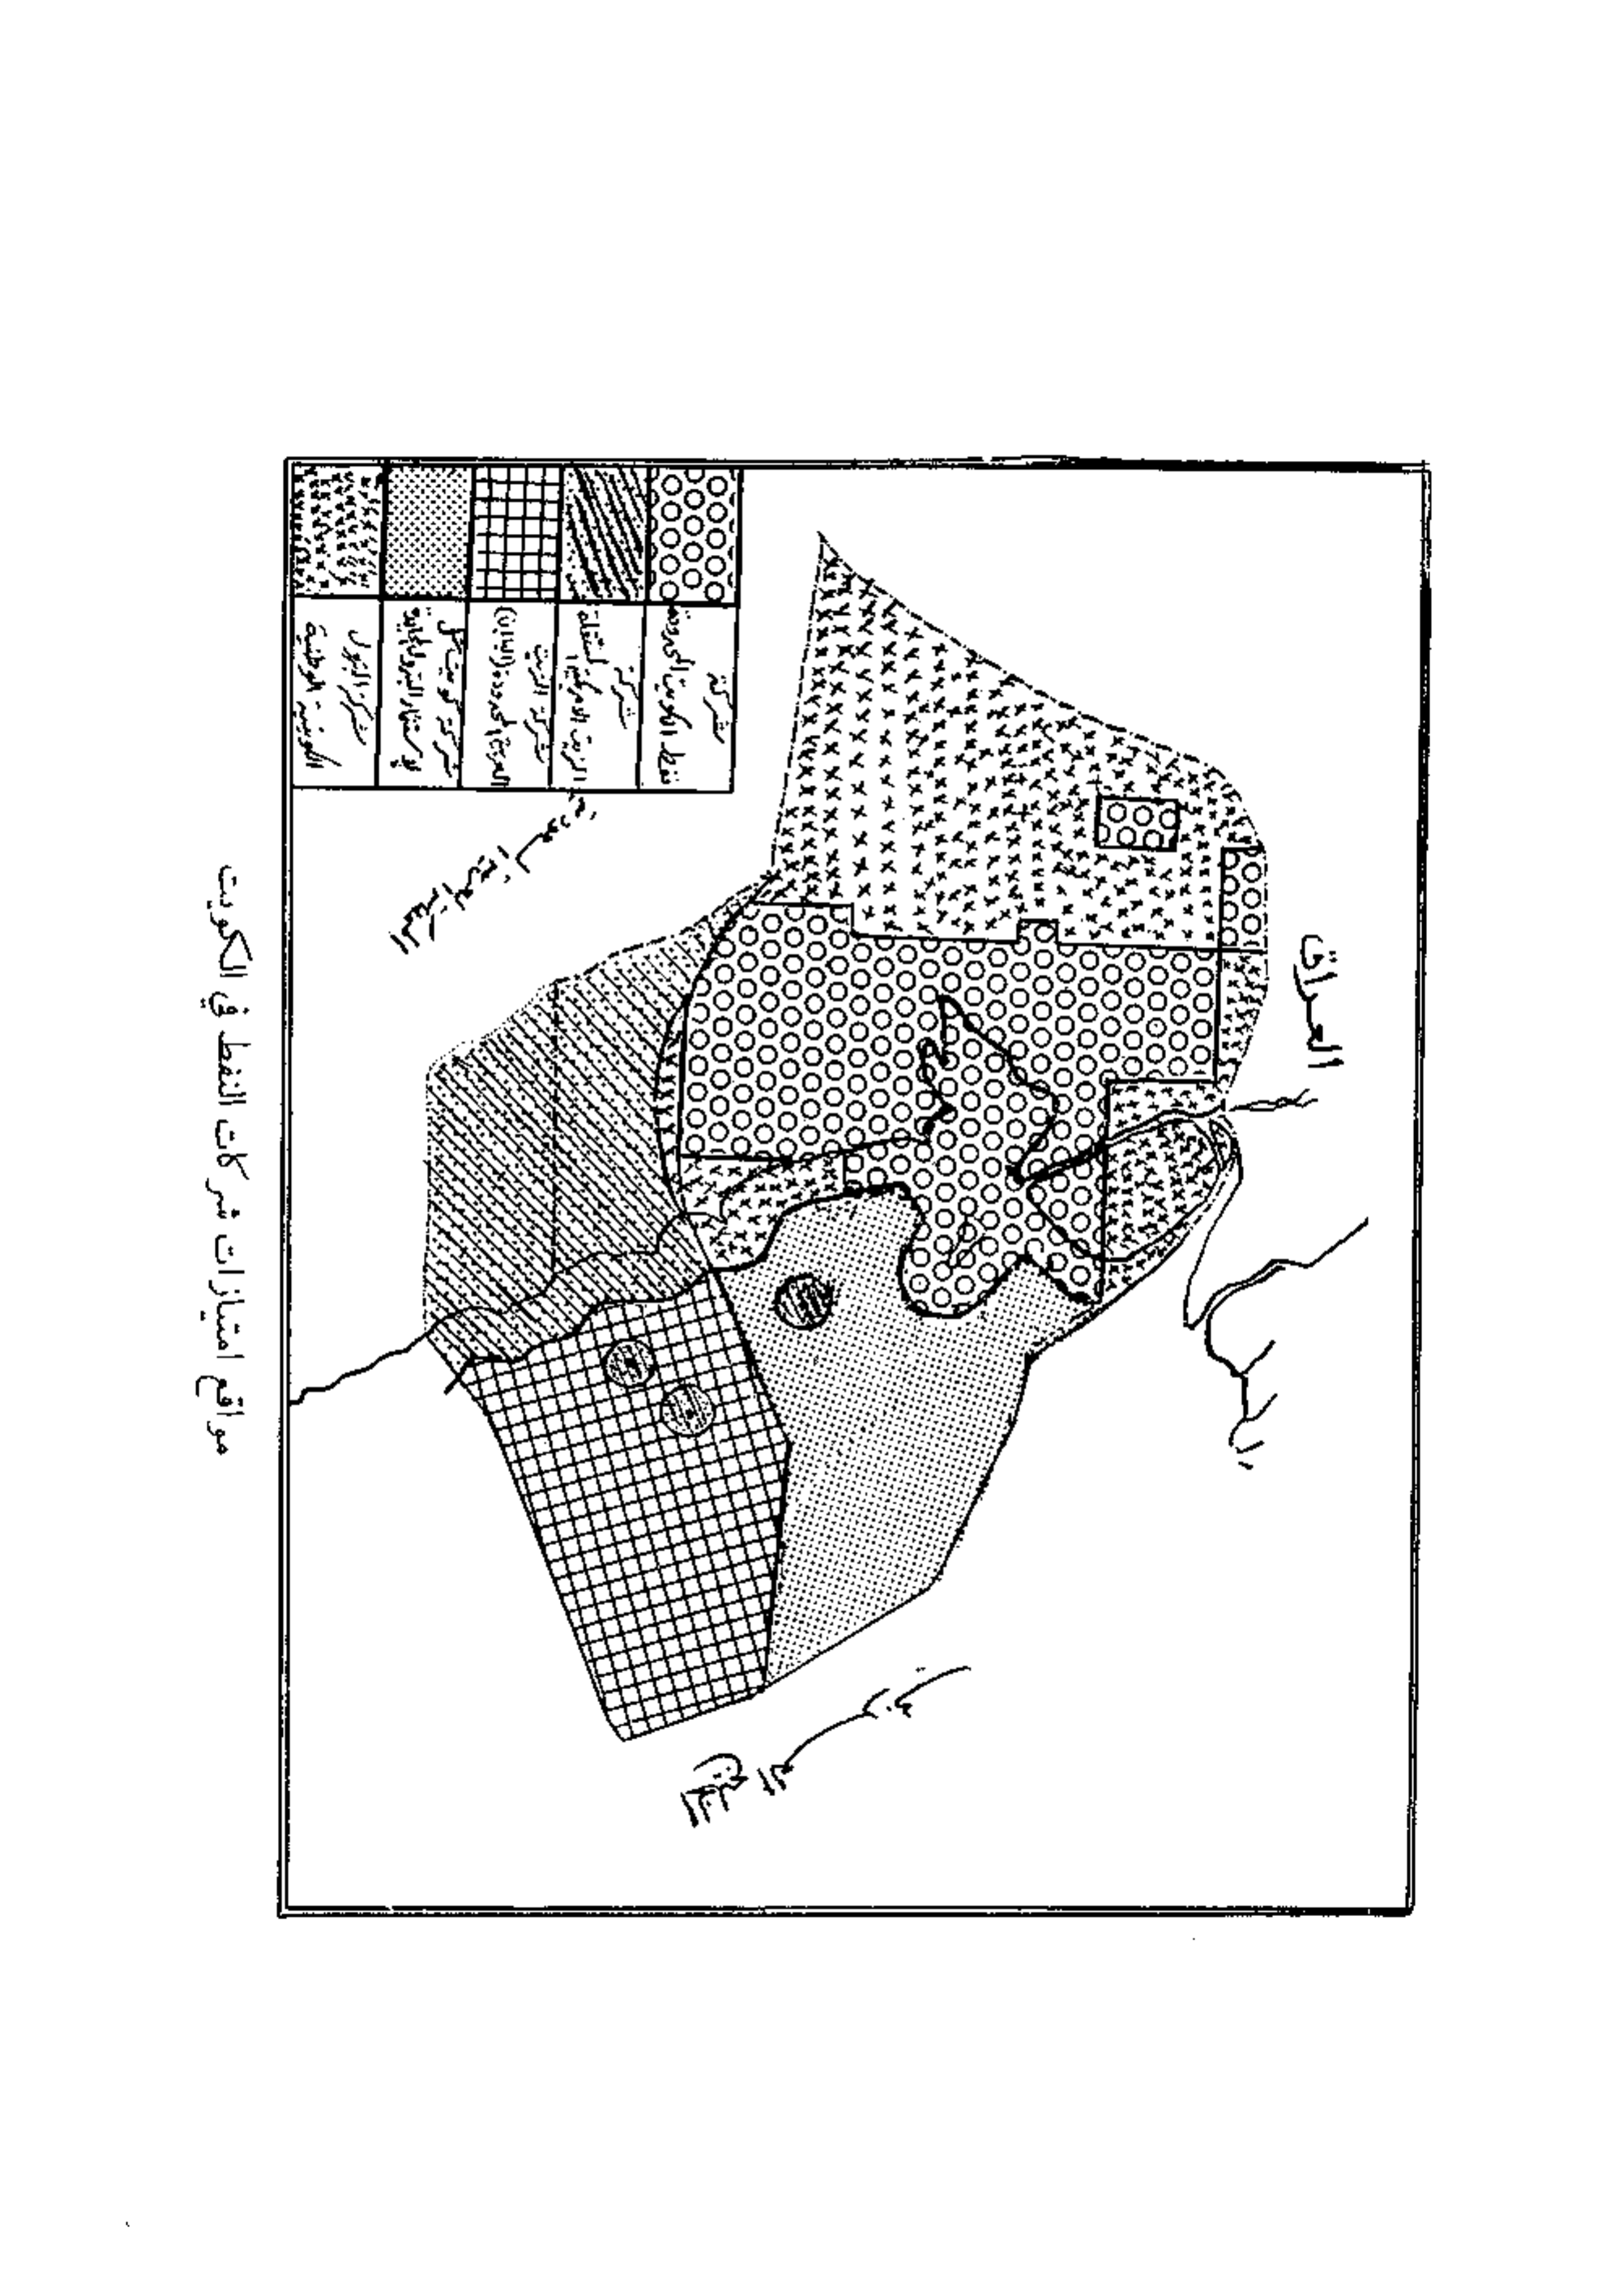 العراق
ايران
الخليج العربي
المملكة العربية السعودية
شركة
نفط الكويت المحدودة
شركة
الزيت الامريكية المستقلة
شركة الزيت
العربية المحدودة (اليابان)
شركة كويت شل
لاستثمار البترول المحدودة
شركة البترول
الكويتية الوطنية
مواقع امتيازات شركات النفط في الكويت